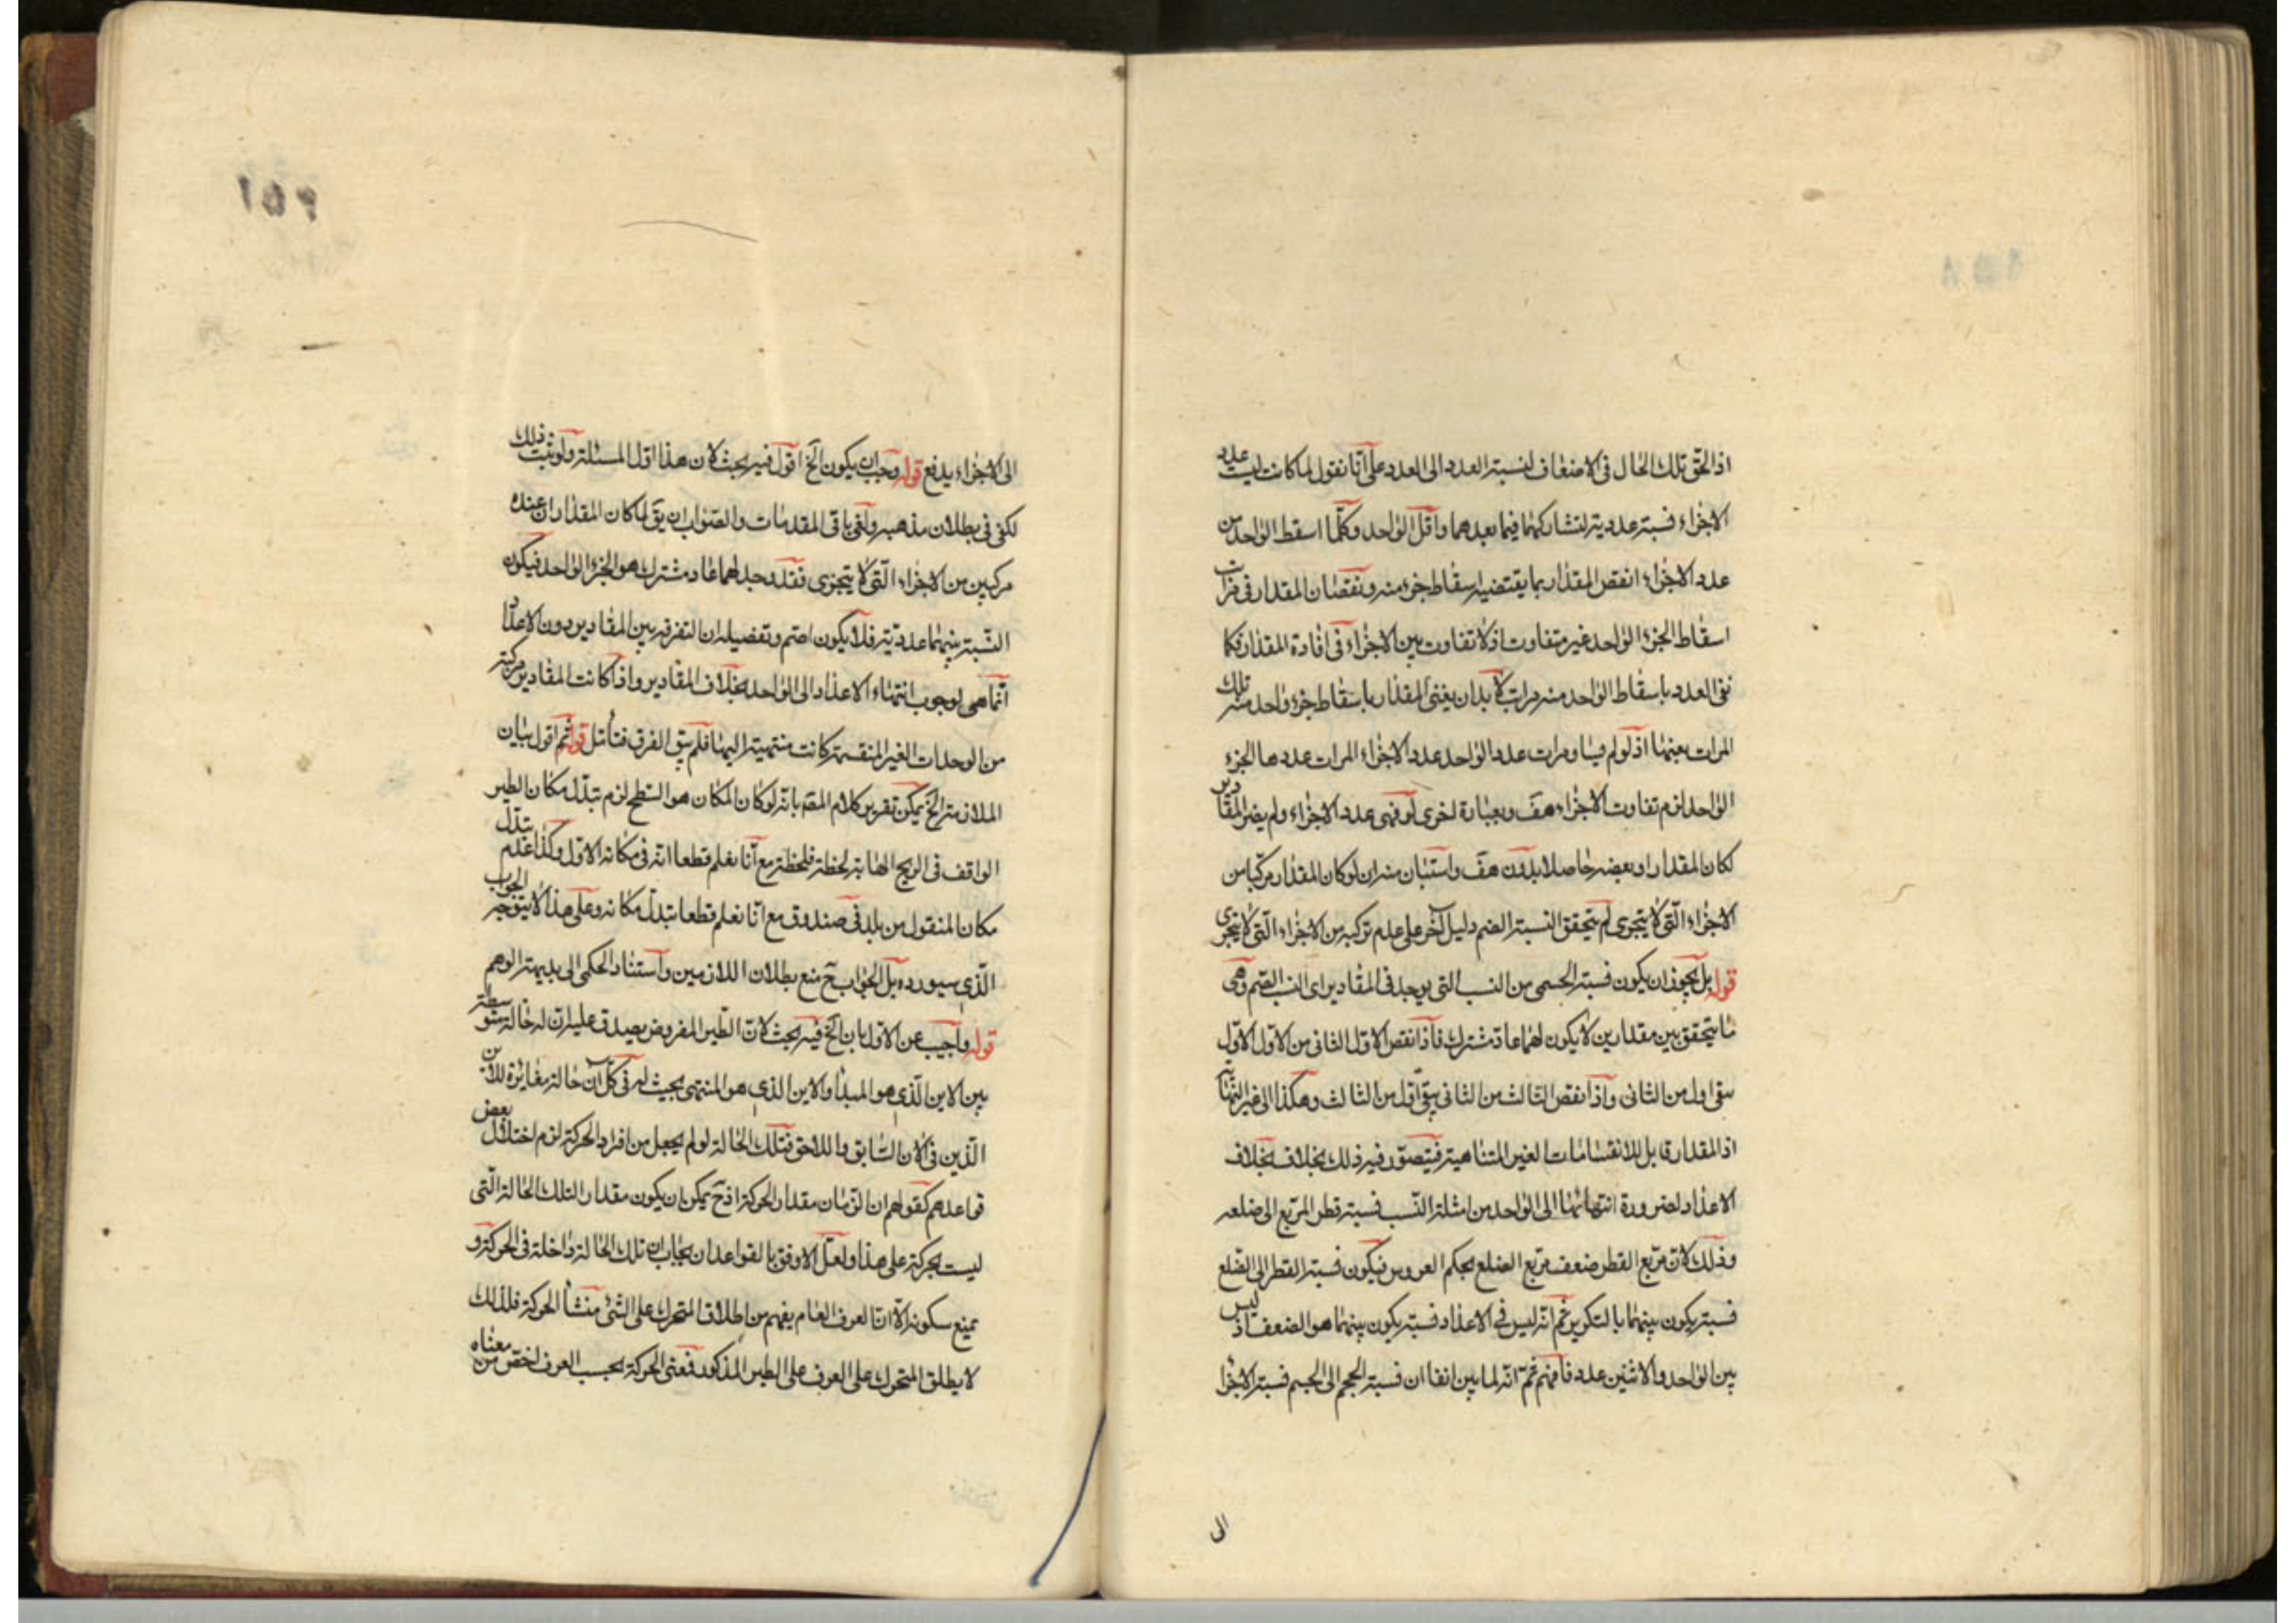 اذ الحق تلك الحال في الاضعاف لنسبة العدد الى العدد على انا نقول لما كانت ليست عدد
الاجزاء فنسبة عددية لتشاركهما فيما بعدهما واقل الواحد وكلما اسقط الواحد من
عدد الاجزاء انقص المقدار بما يقتضيه اسقاط جزء منه ونقصان المقدار في مرات
اسقاط الجزء الواحد غير متفاوت اذ لا تفاوت بين الاجزاء في افادة المقدار فكما
نفى العدد باسقاط الواحد منه مرات لا بد ان يفنى المقدار باسقاط جزء واحد منه تلك
المرات بعينها اذ لو لم يساو مرات عدد الواحد عدد الاجزاء المرات عددها الجزء
الواحد لزم تفاوت الاجزاء هف وبعبارة اخرى لو فنى عدد الاجزاء ولم يفن المقادير
لكان المقدار او بعضه حاصلا بدون هف واستبان منه ان لو كان المقدار مركبا من
الاجزاء التي لا يتجزى لم يتحقق النسبة الصم دليل آخر على عدم تركبه من الاجزاء التي لا يتجزى
قوله بل يجوز ان يكون نسبة الجسمى من النسب التي يوجد في المقادير اى النسب الصم وهى
ما يتحقق بين مقدارين لا يكون لهما عاد مشترك فاذا نقص الاول الثاني من الاول الاول
بقى اول من الثاني واذا نقص الثالث من الثاني يبقى اقل من الثالث وهكذا الى غير النهاية
اذ المقدار قابل للانقسامات الغير المتناهية فيتصور فيه ذلك بخلاف بخلاف
الاعداد لضرورة انتهائها الى الواحد من امثلة النسب نسبة قطر المربع الى ضلعه
وذلك لان مربع القطر ضعف مربع الضلع بحكم العروس فيكون نسبة القطر الى الضلع
نسبة يكون بينهما بالتكرير ثم انه ليس في الاعداد نسبة يكون بينهما هو الضعف اذ ليس
بين الواحد والاثنين عدد فافهم ثم انه لما بين انفا ان نسبة الحجم الى الجسم نسبة الاجزا
الى
٢٥١
الى الاجزاء يدفع قوله وجب ان يكون الخ اقول فيه بحث لان هذا اول المسئلة ولو ثبت ذلك
لكفى في بطلان مذهبه ولغى باقى المقدمات والصواب ان يق لما كان المقداران عنده
مركبين من الاجزاء التي لا يتجزى فقد وجد لهما عاد مشترك هو الجزء الواحد فيكون
النسبة بينهما عددية فلا يكون اصم وتفصيله ان التفرقة بين المقادير دون الاعداد
انما هى لوجوب انتهاء الاعداد الى الواحد بخلاف المقادير واذا كانت المقادير مركبة
من الوحدات الغير المنقسمة كانت منتهية اليها فلم يبق الفرق فتأمل قوله ثم اقول بيان
الملازمة الخ يمكن تقرير كلام المص بانه لو كان المكان هو السطح لزم تبدل مكان الطير
الواقف في الريح الهابة لحظة فلحظة مع انا نعلم قطعا انه في مكانه الاول وكذا عدم تبدل
مكان المنقول من بلد في صندوق مع انا نعلم قطعا تبدل مكانه وعلى هذا لا يتوجه الجواب
الذى سيورده بل الجواب ح منع بطلان اللازمين واستناد الحكمى الى بديهة الوهم
قوله واجيب عن الاول بان الخ فيه بحث لان الطير المفروض يصدق عليه ان له حالة متوسطة
بين الاين الذى هو المبدأ والاين الذى هو المنتهى بحيث له في كل آن حالة مغايرة للاين
الذين في الآن السابق واللاحق فتلك الحالة لو لم يجعل من افراد الحركة لزم اختلال بعض
قواعدهم كقولهم ان الزمان مقدار الحركة اذ ح يمكن ان يكون مقدار التلك الحالة التي
ليست بحركة على هذا ولعل الاوفق بالقواعد ان يجاب ان تلك الحالة داخلة في الحركة و
يمنع سكونه الا ان العرف العام يفهم من اطلاق المتحرك على الشئ منشأ الحركة فلذلك
لا يطلق المتحرك على العرف على الطير المذكور فمعنى الحركة بحسب العرف اخص من معناه